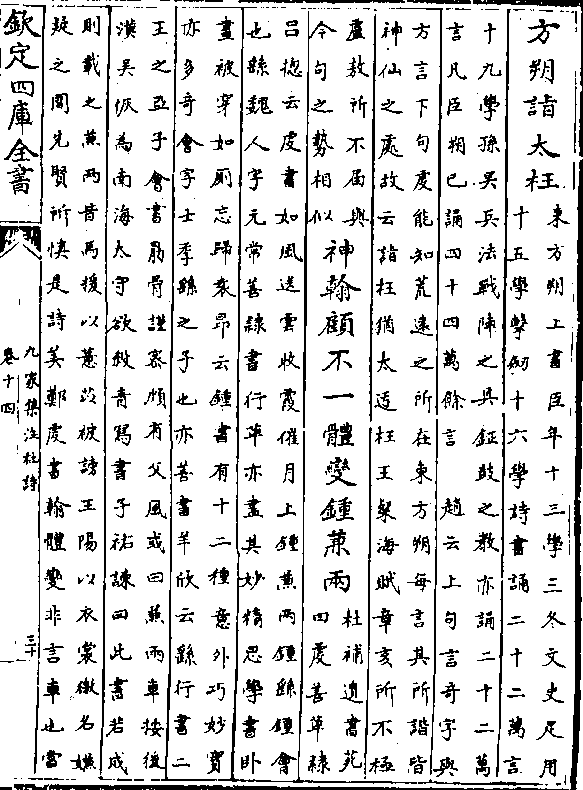 方朔諧太枉
東方朔上書臣年十三學三冬文史足用
十五學擊劒十六學詩書誦二十二萬言
十九學孫吳兵法戰陣之具鉦鼓之教亦誦二十二萬
言凡臣朔已誦四十四萬餘言 趙云上句言奇字與
方言下句虔能知荒遠之所在東方朔每言其所諧皆
神仙之處故云諧枉猶太迃枉王粲海賦章亥所不極
盧敖所不屆與
今句之勢相似
神翰顧不一體變鍾兼兩
杜補遺書苑
四虔善草隸
呂揔云虔書如風送雲收霞催月上鍾兼兩鍾繇鍾會
也繇魏人字元常善隸書行草亦盡其妙精思學書卧
畫被穿如厠忘歸袁昂云鍾書有十二種意外巧妙實
亦多奇會字士季繇之子也亦善書羊欣云繇行書二
王之亞子會書筋骨謹宻頗有父風或曰兼兩車按後
漢吳恢為南海太守欲殺青寫書子祐諫曰此書若成
則載之兼兩昔馬援以薏苡被謗王陽以衣裳徼名嫌
疑之間先賢所慎是詩美鄭虔書翰體變非言車也當
欽定四庫全書
九家集注杜詩
卷十四
三十